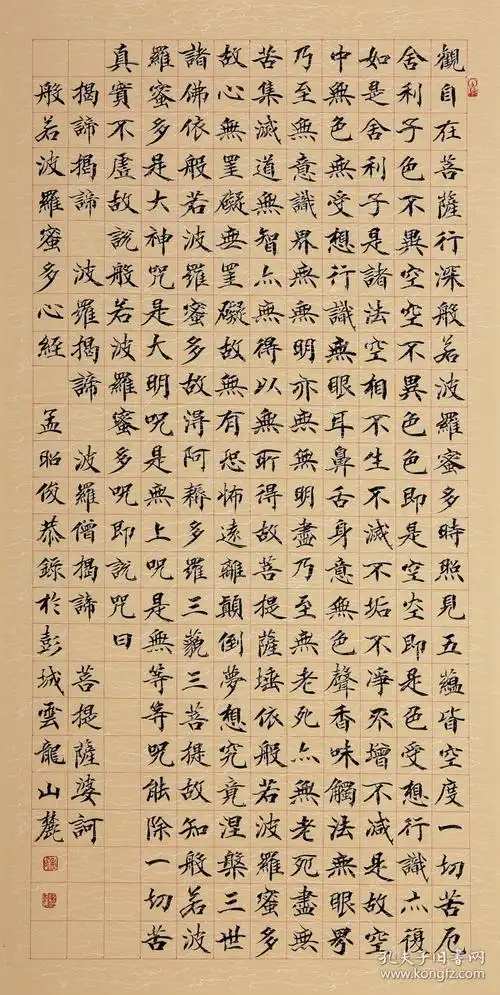 觀自在菩薩行深般若波羅蜜多時照見五蘊皆空度一切苦厄
舍利子色不異空空不異色色即是空空即是色受想行識亦復
如是舍利子是諸法空相不生不滅不垢不淨不增不減是故空
中無色無受想行識無眼耳鼻舌身意無色聲香味觸法無眼界
乃至無意識界無無明亦無無明盡乃至無老死亦無老死盡無
苦集滅道無智亦無得以無所得故菩提薩埵依般若波羅蜜多
故心無罣礙無罣礙故無有恐怖遠離顛倒夢想究竟涅槃三世
諸佛依般若波羅蜜多故得阿耨多羅三藐三菩提故知般若波
羅蜜多是大神咒是大明咒是無上咒是無等等咒能除一切苦
真實不虛故說般若波羅蜜多咒即說咒曰
揭諦揭諦 波羅揭諦 波羅僧揭諦 菩提薩婆訶
般若波羅蜜多心經 孟昭俊恭錄於彭城雲龍山麓
孔夫子旧书网
www.kongfz.com